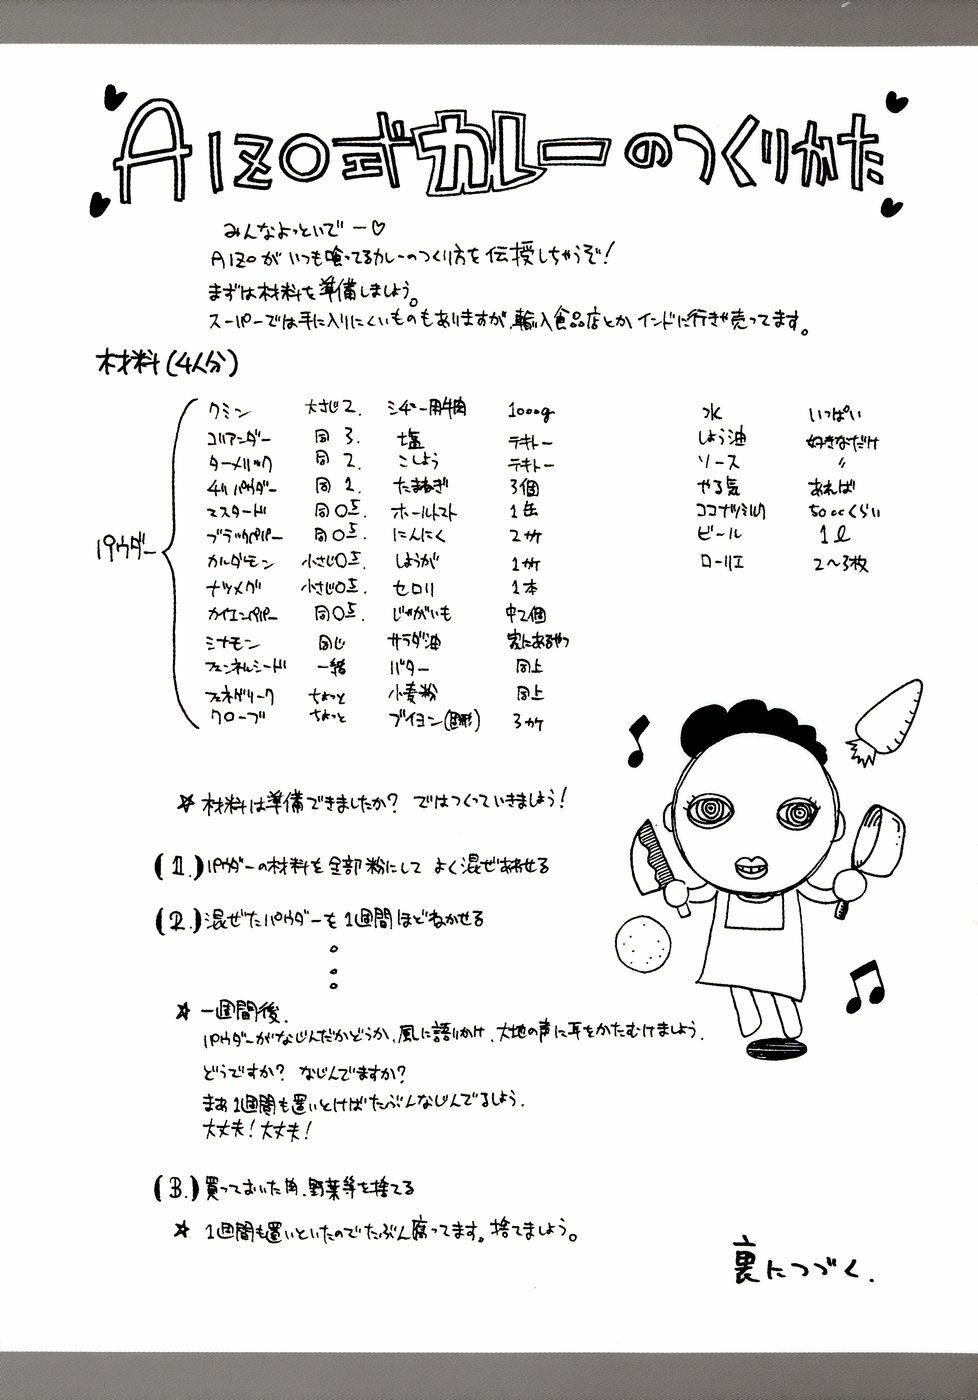 AIZO式カレーのつくりかた
みんなよっといでー♡
AIZOがいつも喰ってるカレーのつくり方を伝授しちゃうぞ!
まずは材料を準備しましょう。
スーパーでは手に入りにくいものもありますが、輸入食品店とかインドに行きゃ売ってます。
材料(4人分)
パウダー
クミン 大さじ2. シチュー用牛肉 1000g 水 いっぱい
コリアンダー 同 3. 塩 テキトー しょう油 好きなだけ
ターメリック 同 2. こしょう テキトー ソース 〃
チリパウダー 同 1. たまねぎ 3個 やる気 あれば
マスタード 同0.5. ホールトマト 1缶 ココナツミルク 500ccくらい
ブラックペパー 同0.5. にんにく 2ヶ ビール 1ℓ
カルダモン 小さじ0.5. しょうが 1ヶ ローリエ 2〜3枚
ナツメグ 小さじ0.5. セロリ 1本
カイエンペパー 同0.5. じゃがいも 中2個
シナモン 同じ サラダ油 家にあるやつ
フェンネルシード 一緒 バター 同上
フェネグリーク ちょっと 小麦粉 同上
クローブ ちょっと ブイヨン(固形) 3ヶ
☆ 材料は準備できましたか? ではつくっていきましょう!
(1.)パウダーの材料を全部粉にして よく混ぜあわせる
(2.)混ぜたパウダーを1週間ほどねかせる
☆ 一週間後.
パウダーがなじんだかどうか、風に語りかけ、大地の声に耳をかたむけましょう.
どうですか? なじんでますか?
まぁ1週間も置いとけばたぶんなじんでるしょう.
大丈夫!大丈夫!
(3.)買っておいた肉、野菜等を捨てる
☆ 1週間も置いといたのでたぶん腐ってます。捨てましょう。
裏につづく.